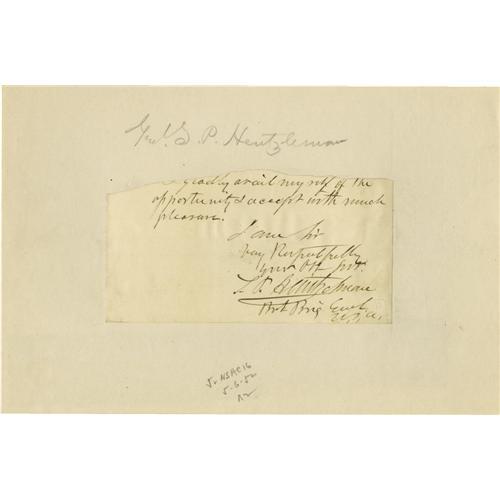 Genl. S. P. Heintzleman
I gladly avail myself of the
opportunity & accept with much
pleasure.
I am Sir
Very Respectfully
Your Obt Svt.
S. P. Heintzelman
Bvt Brig Genl.
U.S.A.
5-6-52